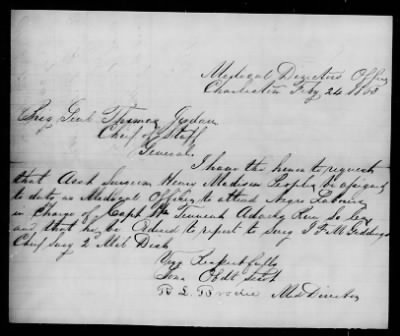 Medical Directors Office
Charleston Feby 24 1863
Brig Genl Thomas Jordan
Chief of Staff
General
I have the honor to request
that Asst Surgeon Henry Madison Peoples be assigned
to duty as Medical Officer to attend Negro Laborers
in Charge of Capt Wm
and that he be Ordered to report to Surg
Chief Surg 2 Mil Dist
Very Respectfully
Your Obdt Servt
R L Brodie Med Director